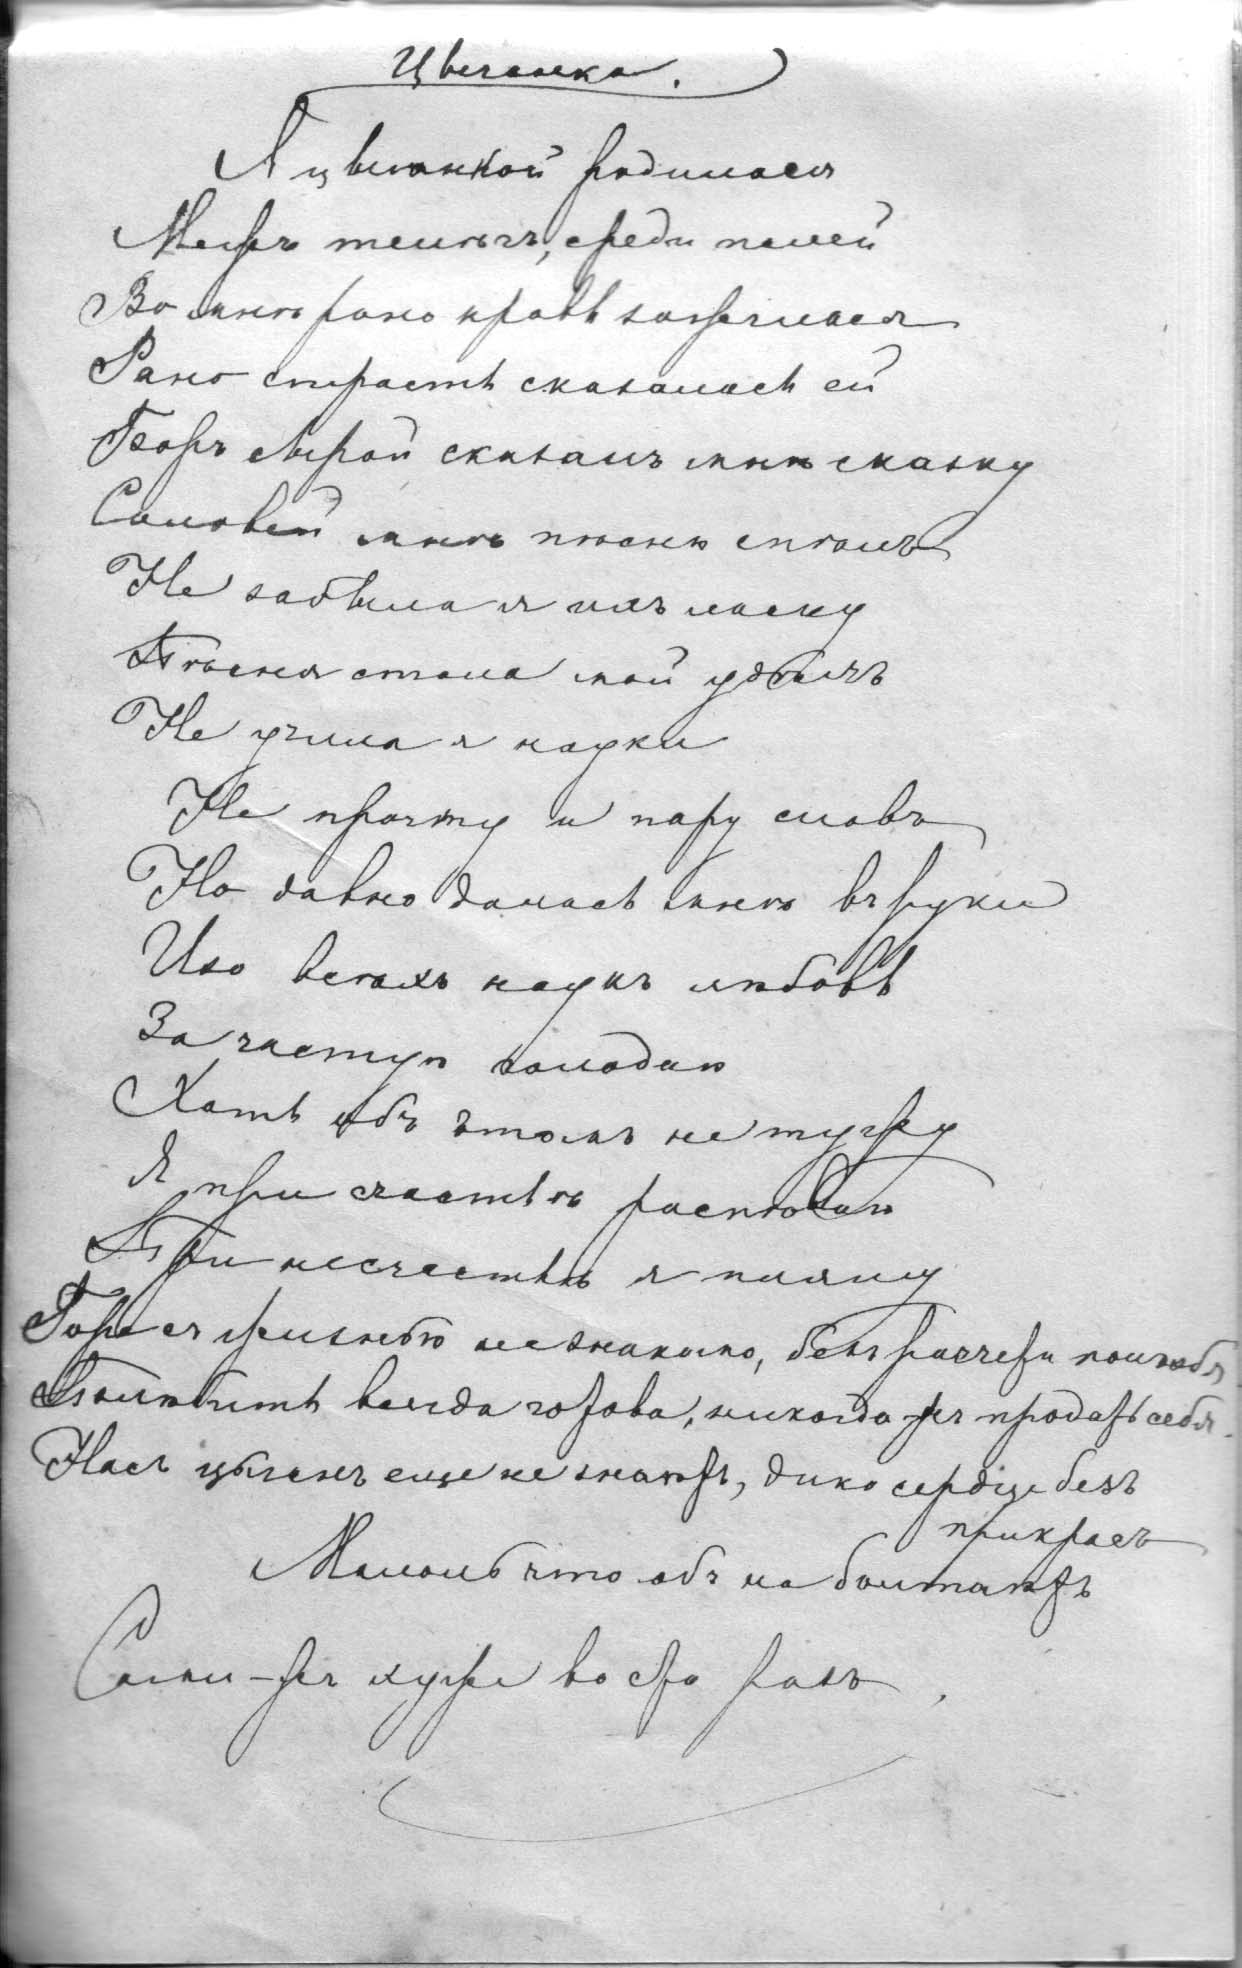 Цыганка.
Я цыганкой родилася
Межъ телегъ, среди полей
Во мнѣ рано кровь зажглася
Рано страсть сказалась ей
Боръ сырой сказалъ мнѣ сказку
Соловей мнѣ пѣсню спѣлъ
Не забыла я ихъ ласку
Пѣсня стала мой удѣлъ
Не учила я науки
Не прочту и пару словъ
Но давно далась мнѣ въ руки
Изо всѣхъ наукъ любовь
Зачастую голодаю
Хоть объ этомъ не тужу
Я при счастьѣ распѣваю
При несчастьѣ я пляшу
Горе съ жизнью незнакомо, безъ разчета полюбя
Полюбить всегда готова, никогда жъ продать себя.
Насъ цыганъ еще не знаютъ, дико сердце безъ
прикрасъ
Мало ль что объ насъ болтаютъ
Сами-жъ хуже во сто разъ.